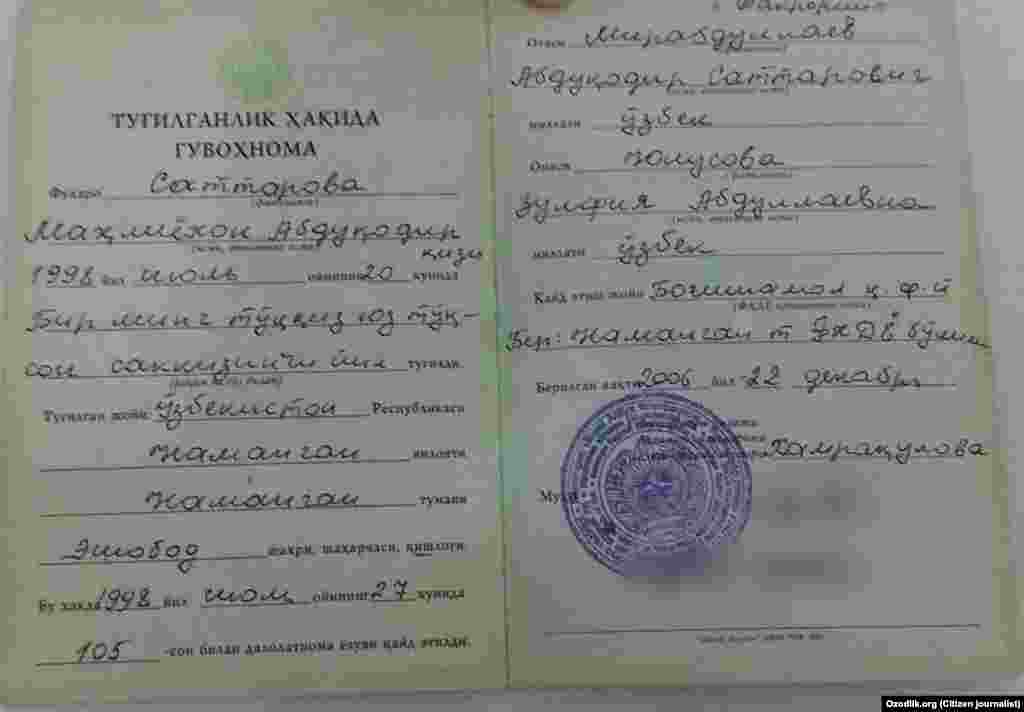 ТУҒИЛГАНЛИК ҲАҚИДА
ГУВОҲНОМА
Фуқаро Саттарова
(фамилияси)
Маҳлиёхон Абдуқодир
қизи
(исми, отасининг исми)
1998 йил июль ойининг 20 кунида
Бир минг тўққиз юз тўқ-
сон саккизинчи йил туғилди.
Туғилган жойи: Ўзбекистон Республикаси
Наманган вилояти
Наманган тумани
Эшобод шаҳри, шаҳарчаси, қишлоғи
Бу ҳақда 1998 йил июль ойининг 27 кунида
105 -сон билан далолатнома ёзуви қайд этилди.
Отаси Мирабдуллаев
Абдуқодир Саттарович
(исми, отасининг исми)
миллати ўзбек
Онаси Юнусова
(фамилияси)
Зулфия Абдуллаевна
(исми, отасининг исми)
миллати ўзбек
Қайд этиш жойи Боғишамол қ. ф. й
Бер: Наманган т ФҲДЁ бўлими
Берилган вақти 2006 йил 22 декабрь
Хамракулова
Ozodlik.org (Citizen journalist)